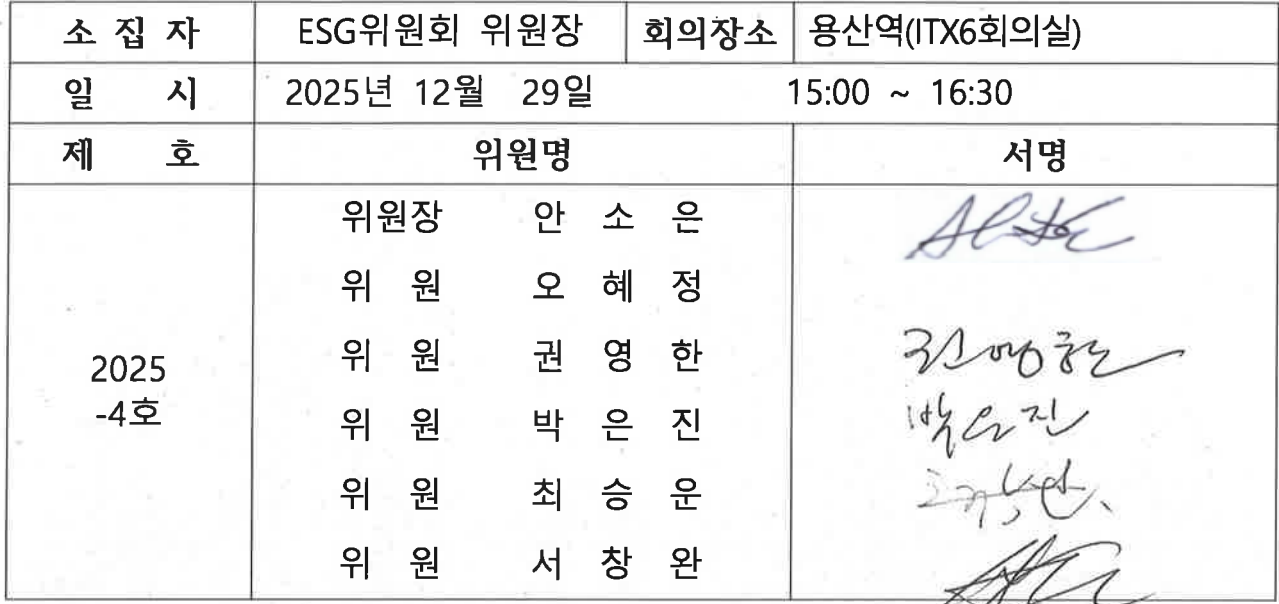 소 집 자 ESG위원회 위원장 회의장소 용산역(ITX6회의실)
일 시 2025년 12월 29일 15:00 ~ 16:30
제 호 위원명 서명
위원장 안 소 은
위 원 오 혜 정
위 원 권 영 한 권영한
2025
-4호
위 원 박 은 진 박은진
위 원 최 승 운
위 원 서 창 완